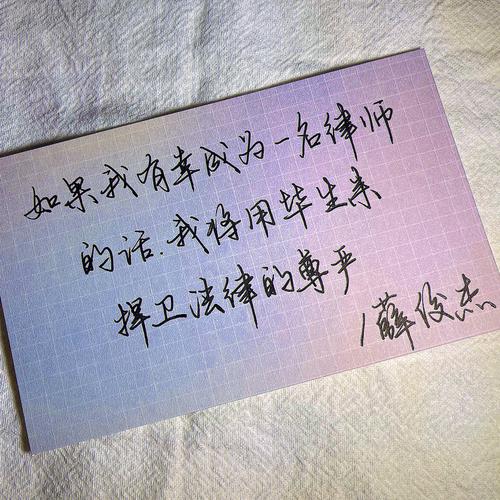 如果我有幸成为一名律师
的话.我将用毕生来
捍卫法律的尊严
/薛俊杰